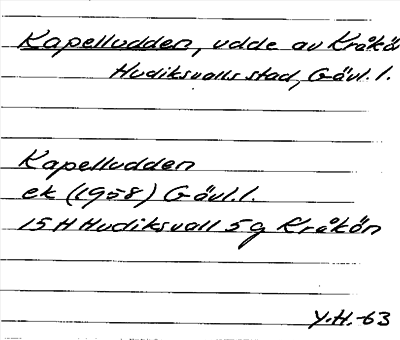 Kapelludden, udde av Kråkö
Hudiksvalls stad, Gävl. l.
Kapelludden
ek (1958) Gävl. l.
15 H Hudiksvall 5g Kråkön
Y.H.-63